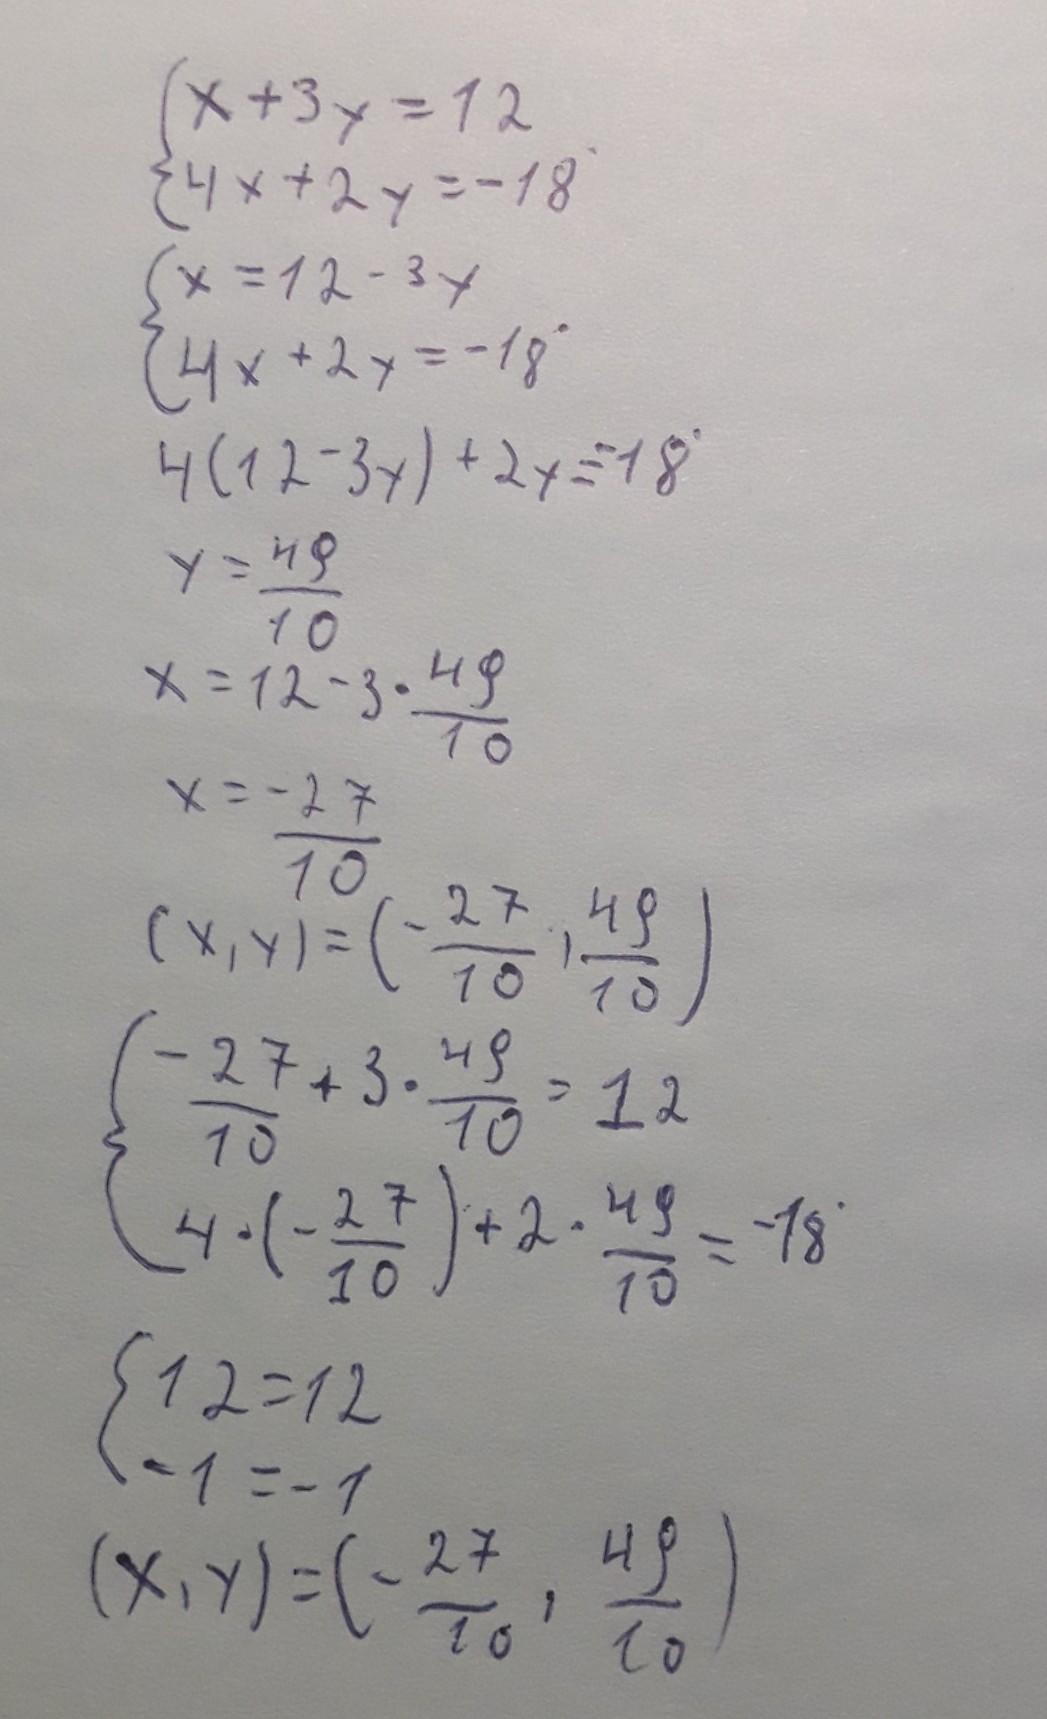 {x+3y=12
{4x+2y=-18°
{x=12-3y
{4x+2y=-18°
4(12-3y)+2y=-18°
y=49/10
x=12-3·49/10
x=-27/10
(x,y)=(-27/10,49/10)
{-27/10+3·49/10=12
{4·(-27/10)+2·49/10=-18°
{12=12
{-1=-1
(x,y)=(-27/10,49/10)